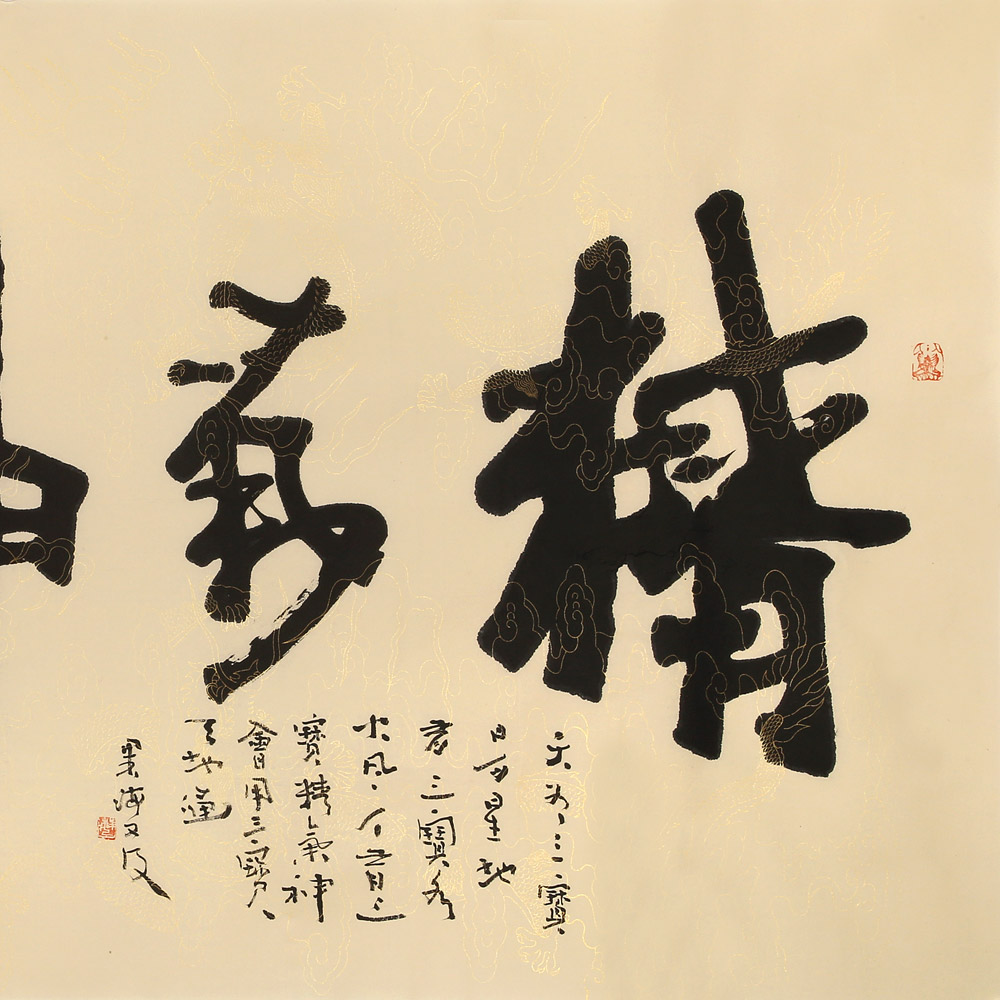 精氣
天有三寶
日月星地
有三寶水
火風人有三
寶精氣神
會用三寶
天地通
墨海又及